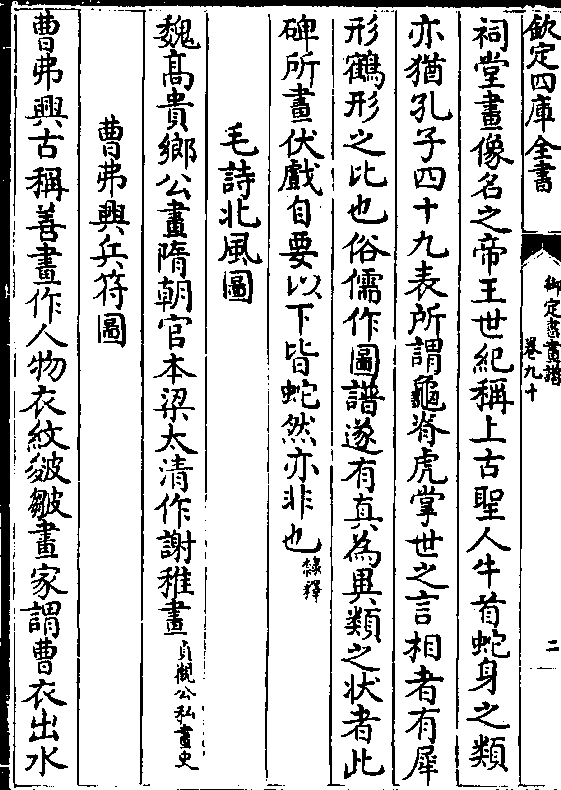 欽定四庫全書
御定書畫譜
卷九十
二
祠堂畫像名之帝王世紀稱上古聖人牛首蛇身之類
亦猶孔子四十九表所謂龜脊虎掌世之言相者有犀
形鶴形之比也俗儒作圖譜遂有真為異類之状者此
碑所畫伏戲自要以下皆蛇然亦非也隸釋
毛詩北風圖
魏髙貴鄉公畫隋朝官本梁太清作謝稚畫貞觀公私畫史
曹弗興兵符圖
曹弗興古稱善畫作人物衣紋皴皺畫家謂曹衣出水